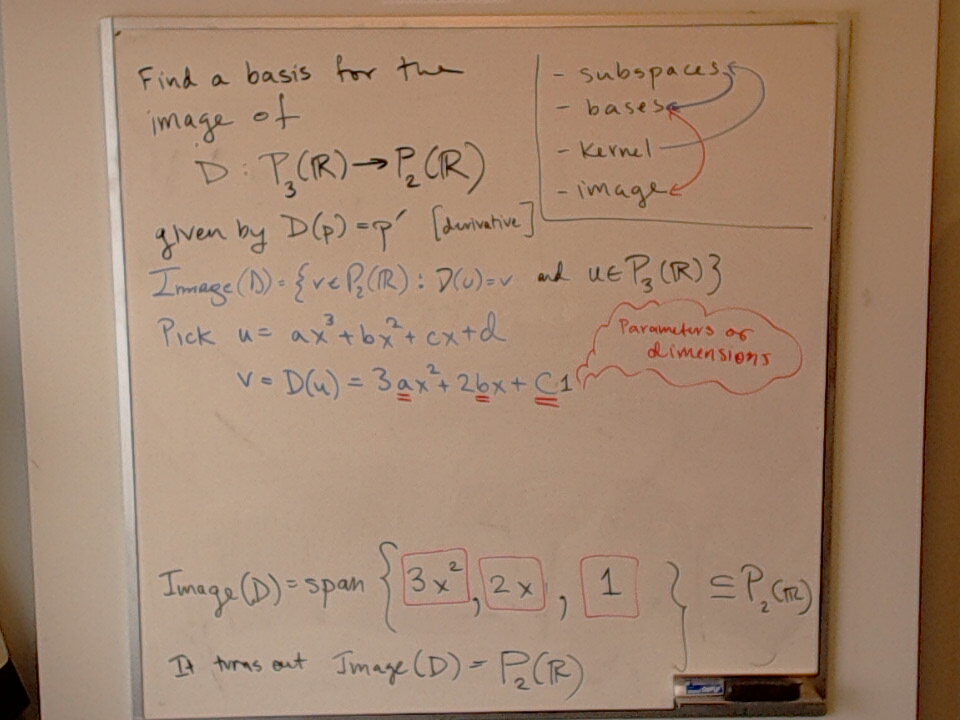 Find a basis for the
image of
D : P₃(ℝ) → P₂(ℝ)
given by D(p) = p′ [derivative]
- subspaces
- bases
- kernel
- image
Image(D) = { v ∈ P₂(ℝ) : D(u) = v and u ∈ P₃(ℝ) }
Pick u = ax³ + bx² + cx + d
v = D(u) = 3ax² + 2bx + C·1
Parameters or
dimensions
Image(D) = span { 3x², 2x, 1 } ⊆ P₂(ℝ)
It turns out Image(D) = P₂(ℝ)